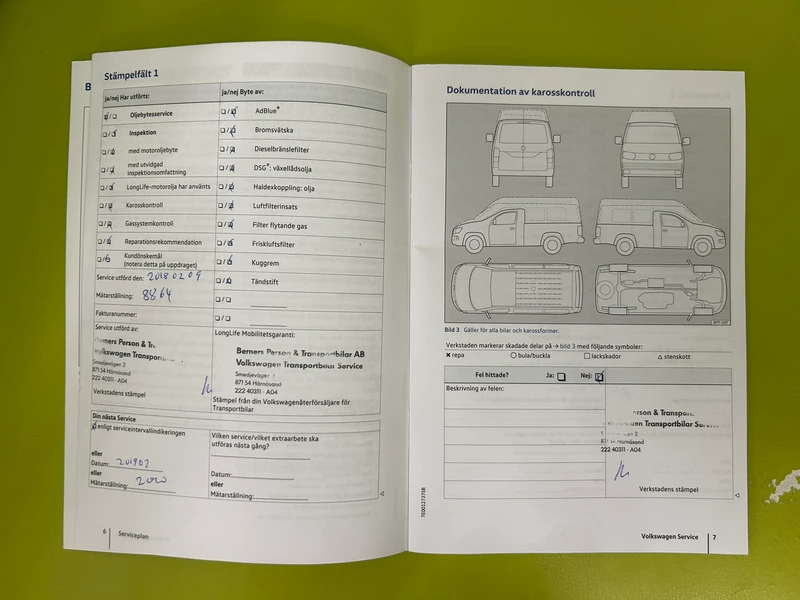 Stämpelfält 1
ja/nej Har utförts:
ja/nej Byte av:
Oljebytesservice
AdBlue®
Inspektion
Bromsvätska
med motoroljebyte
Dieselbränslefilter
med utvidgad
inspektionsomfattning
DSG®: växellådsolja
LongLife-motorolja har använts
Haldexkoppling: olja
Karosskontroll
Luftfilterinsats
Gassystemkontroll
Filter flytande gas
Reparationsrekommendation
Friskluftsfilter
Kundönskemål
(notera detta på uppdraget)
Kuggrem
Service utförd den: 2018 02 09
Tändstift
Mätarställning: 8864
Fakturanummer:
Service utfört av:
LongLife Mobilitetsgaranti:
Berners Person & Tra
Volkswagen Transportb
Smedjevägen
871 54 Härnösand
222 40311 - A04
Verkstadens stämpel
Berners Person & Transportbilar AB
Volkswagen Transportbilar Service
Smedjevägen
871 54 Härnösand
222 40311 - A04
Stämpel från din Volkswagenåterförsäljare för
Transportbilar
Din nästa Service
enligt serviceintervallindikeringen
Vilken service/vilket extraarbete ska
utföras nästa gång?
eller
Datum: 201902
eller
Mätarställning:
Datum:
eller
Mätarställning:
6 Serviceplan
Dokumentation av karosskontroll
Bild 3 Gäller för alla bilar och karossformer.
Verkstaden markerar skadade delar på → bild 3 med följande symboler:
× repa ○ bula/buckla □ lackskador △ stenskott
Fel hittade? Ja: Nej:
Beskrivning av felen:
erson & Transport
Volkswagen Transportbilar Se
871 54 Härnösand
222 40311 - A04
Verkstadens stämpel
7E0012737SB
Volkswagen Service 7